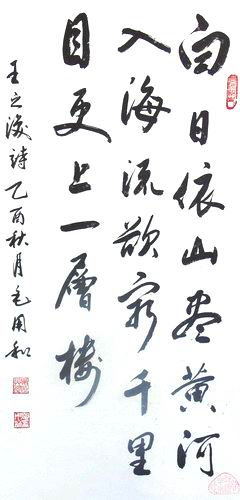 白日依山盡黃河
入海流欲窮千里
目更上一層樓
王之渙詩乙酉秋月毛用和